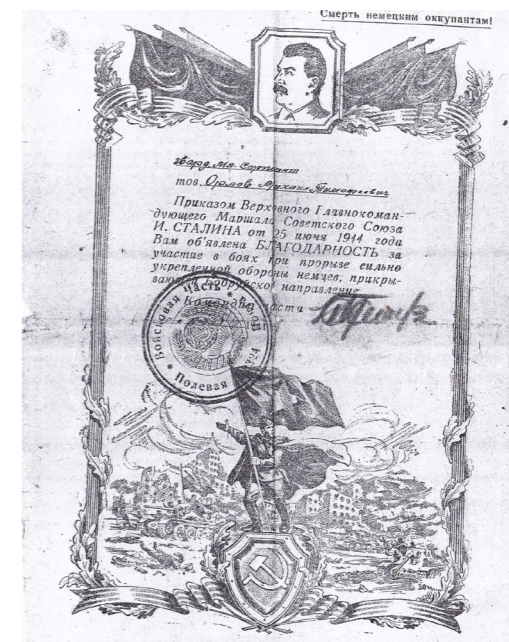 Смерть немецким оккупантам!
гвард. мл. Сержант
тов. Орлов Михаил Тимофеевич
Приказом Верховного Главнокоман-
дующего Маршала Советского Союза
И. СТАЛИНА от 25 июня 1944 года
Вам об'явлена БЛАГОДАРНОСТЬ за
участие в боях при прорыве сильно
укрепленной обороны немцев, прикры-
бобруйское направление
Командир части
Войсковая часть * Полевая